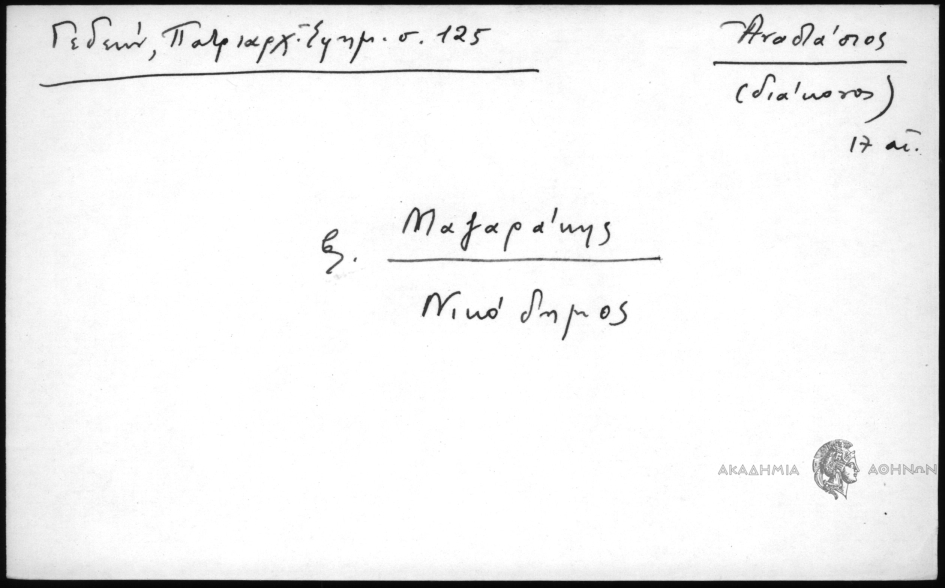 Γεδεών, Πατριαρχ. Εφημ. σ. 125
Ἀναστάσιος
(διάκονος)
17 αἰ.
βλ. Μαζαράκης
Νικόδημος
ΑΚΑΔΗΜΙΑ ΑΘΗΝΩΝ